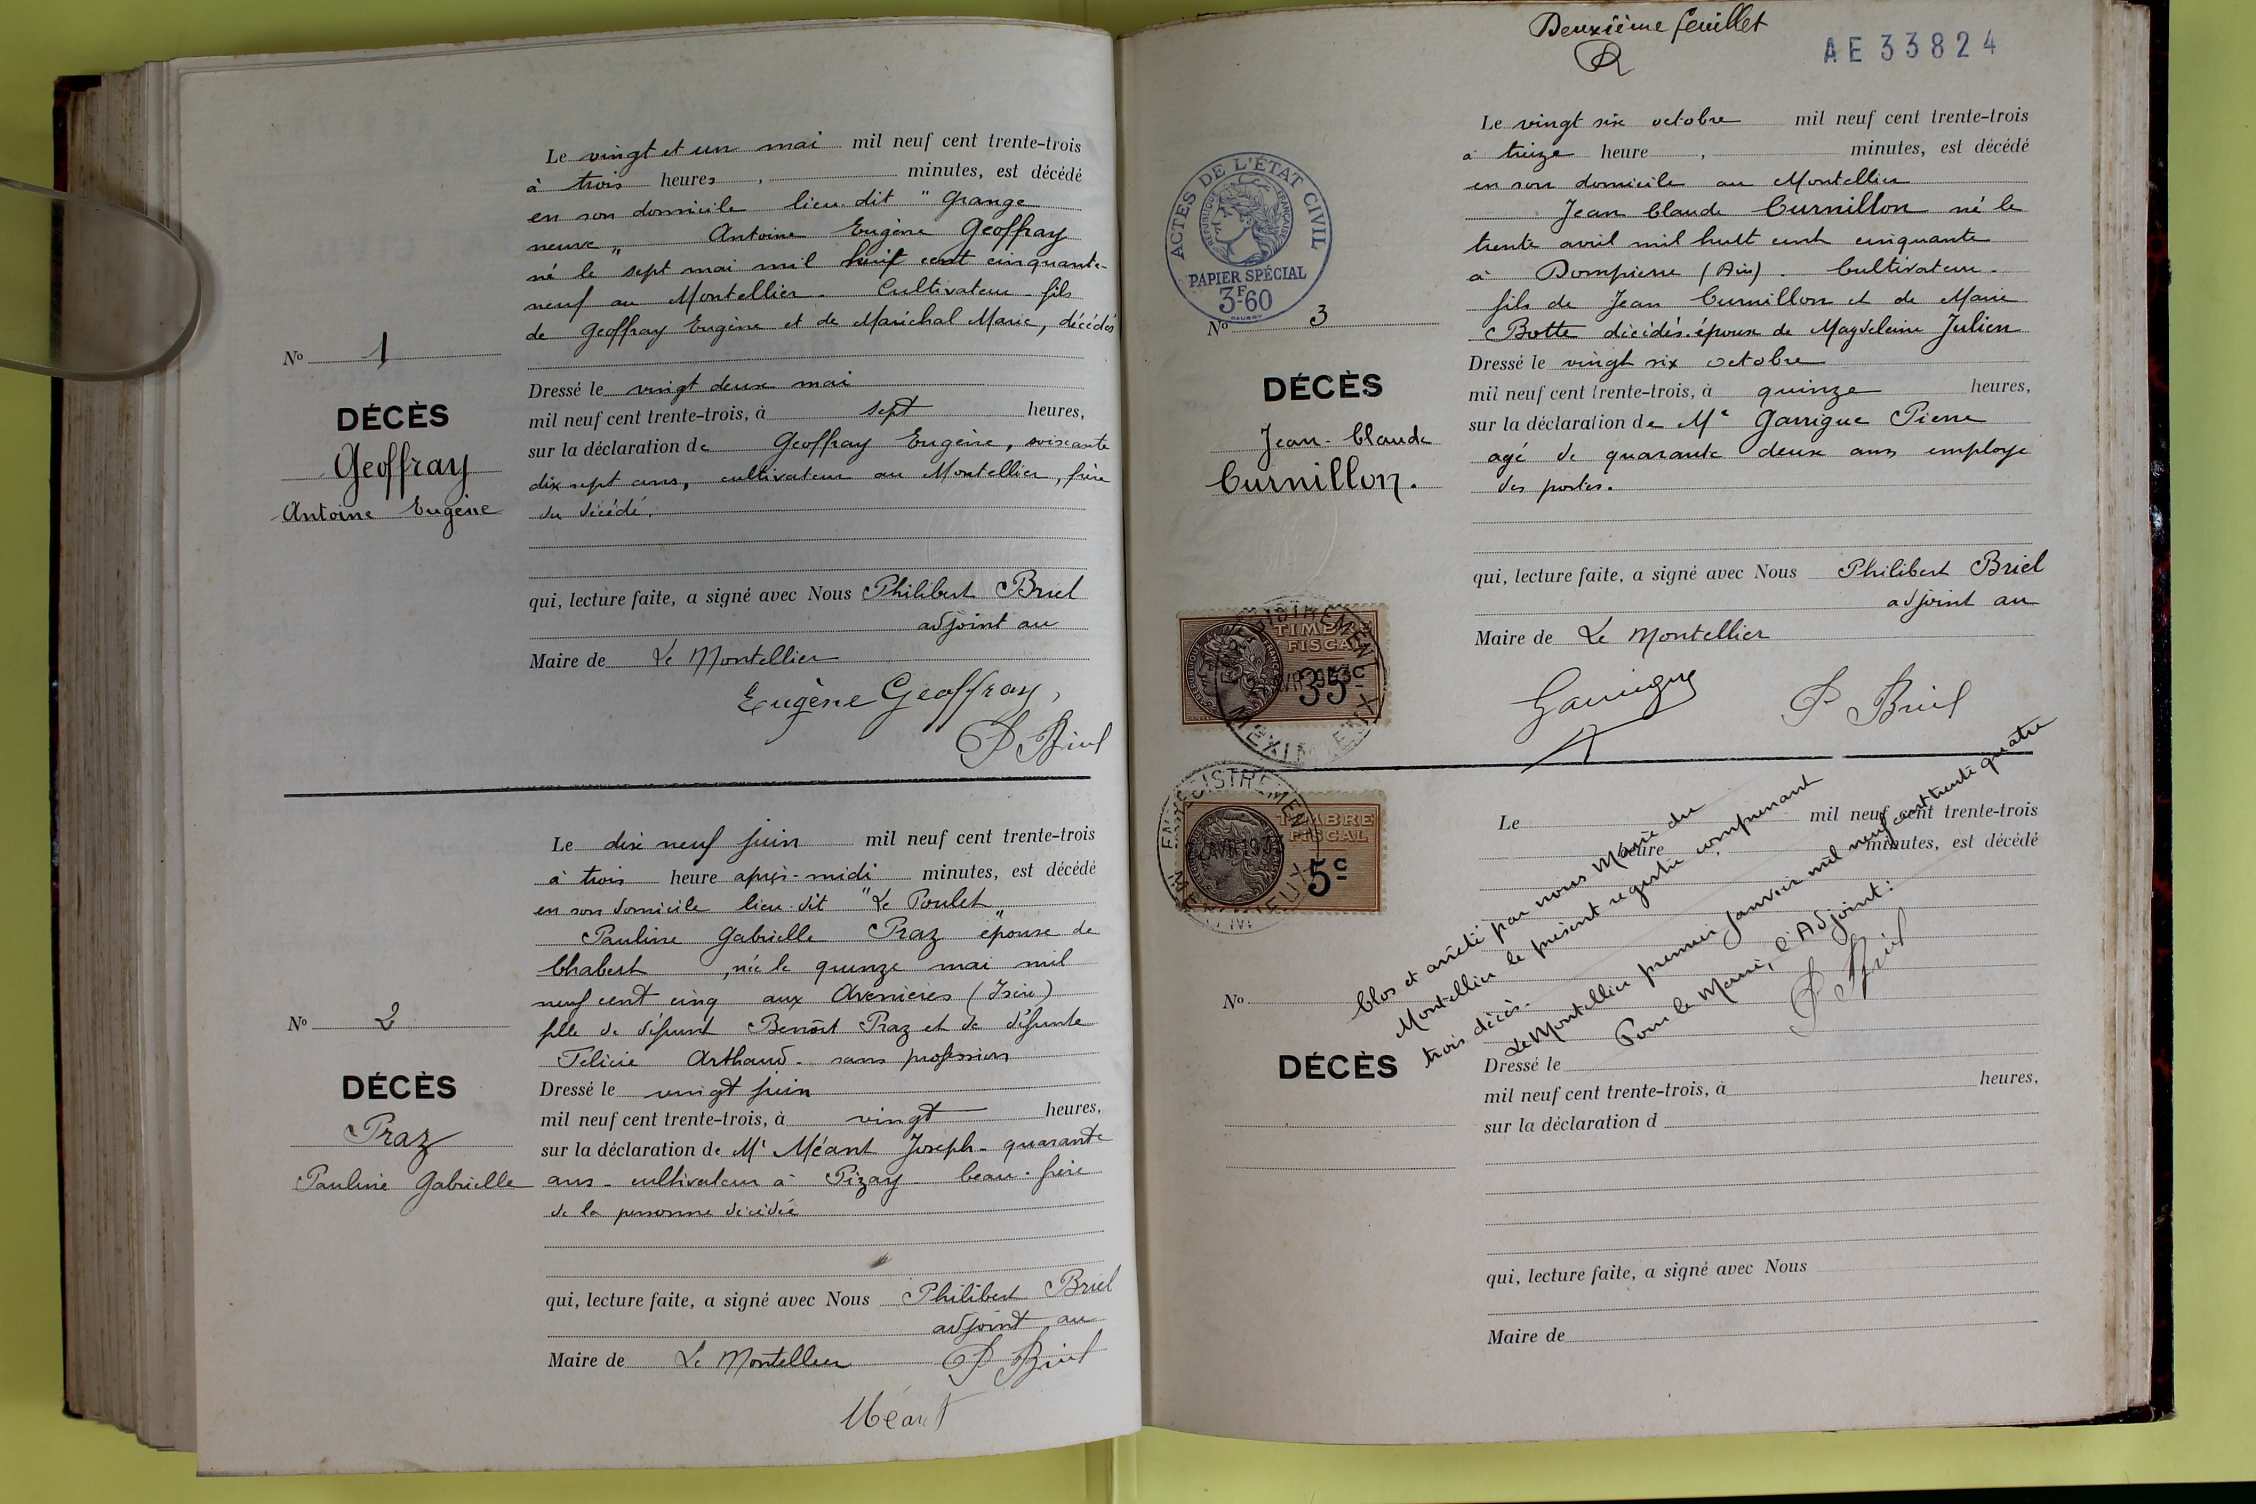 Le vingt et un mai mil neuf cent trente-trois
à trois heures , minutes, est décédé
en son domicile lieu dit " Grange
neuve " Antoine Eugène Geoffray
né le sept mai mil huit cent cinquante-
neuf au Montellier. Cultivateur fils
de Geoffray Eugène et de Maréchal Marie, décédés
No 1
DÉCÈS
Geoffray
Antoine Eugène
Dressé le vingt deux mai
mil neuf cent trente-trois, à sept heures,
sur la déclaration de Geoffray Eugène, soixante
dix sept ans, cultivateur au Montellier, frère
du décédé.
qui, lecture faite, a signé avec Nous Philibert Briel
adjoint au
Maire de Le Montellier
Eugène Geoffray
P Briel
Le dix neuf juin mil neuf cent trente-trois
à trois heure après-midi minutes, est décédé
en son domicile lieu dit "Le Poulet
Pauline Gabrielle Praz " épouse de
Chabert , née le quinze mai mil
neuf cent cinq aux Avenieres (Isère)
fille de défunt Benoît Praz et de défunte
Félicie Arthaud - sans profession
No 2
DÉCÈS
Praz
Pauline Gabrielle
Dressé le vingt juin
mil neuf cent trente-trois, à vingt heures,
sur la déclaration de Mr Méant Joseph - quarante
ans - cultivateur à Pizay beau-frère
de la personne décédée
qui, lecture faite, a signé avec Nous Philibert Briel
adjoint au
Maire de Le Montellier P Briel
Méant
Deuxième feuillet
AE 33824
Le vingt six octobre mil neuf cent trente-trois
à treize heure , minutes, est décédé
en son domicile au Montellier
Jean Claude Curnillon né le
trente avril mil huit cent cinquante
à Dompierre (Ain). Cultivateur.
fils de Jean Curnillon et de Marie
Botte décédés. époux de Magdeleine Julien
ACTES DE L'ÉTAT CIVIL
RÉPUBLIQUE FRANÇAISE
PAPIER SPÉCIAL
3F60
No 3
DÉCÈS
Jean-Claude
Curnillon.
Dressé le vingt six octobre
mil neuf cent trente-trois, à quinze heures,
sur la déclaration de Mr Garrigue Pierre
agé de quarante deux ans employe
des postes.
qui, lecture faite, a signé avec Nous Philibert Briel
adjoint au
Maire de Le Montellier
Garrigue
P Briel
ENREGISTREMENT
TIMBRE
FISCAL
35c
MEXIMIEUX
ENREGISTREMENT
TIMBRE
FISCAL
5c
MEXIMIEUX
Le mil neuf cent trente-trois
heure minutes, est décédé
Clos et arrêté par nous Maire du
Montellier le présent registre comprenant
trois décès.
Le Montellier premier Janvier mil neuf cent trente quatre
Pour le Maire, l'Adjoint:
P Briel
No
DÉCÈS
Dressé le
mil neuf cent trente-trois, à heures,
sur la déclaration d
qui, lecture faite, a signé avec Nous
Maire de